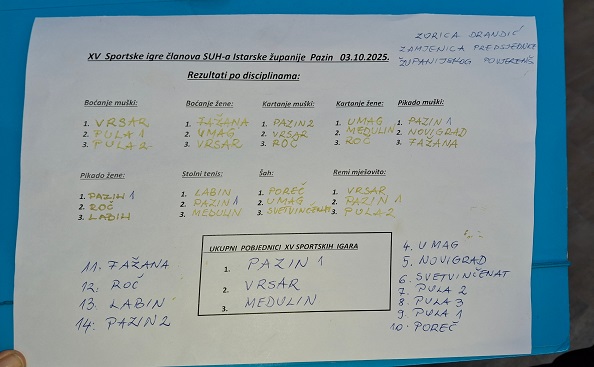 ZORICA DRANDIĆ
ZAMJENICA PREDSJEDNICE
ŽUPANIJSKOG POVJEREN.
XV Sportske igre članova SUH-a Istarske županije Pazin 03.10.2025.
Rezultati po disciplinama:
Boćanje muški:
1. VRSAR
2. PULA 1
3. PULA 2
Boćanje žene:
1. FAŽANA
2. UMAG
3. VRSAR
Kartanje muški:
1. PAZIN 2
2. VRSAR
3. ROČ
Kartanje žene:
1. UMAG
2. MEDULIN
3. ROČ
Pikado muški:
1. PAZIN 1
2. NOVIGRAD
3. FAŽANA
Pikado žene:
1. PAZIN 1
2. ROČ
3. LABIN
Stolni tenis:
1. LABIN
2. PAZIN 1
3. MEDULIN
Šah:
1. POREČ
2. UMAG
3. SVETVINČENAT
Remi mješavito:
1. VRSAR
2. PAZIN 1
3. PULA 2
UKUPNI POBJEDNICI XV SPORTSKIH IGARA
1. PAZIN 1
2. VRSAR
3. MEDULIN
4. UMAG
5. NOVIGRAD
6. SVETVINČENAT
7. PULA 2
8. PULA 3
9. PULA 1
10. POREČ
11. FAŽANA
12. ROČ
13. LABIN
14. PAZIN 2